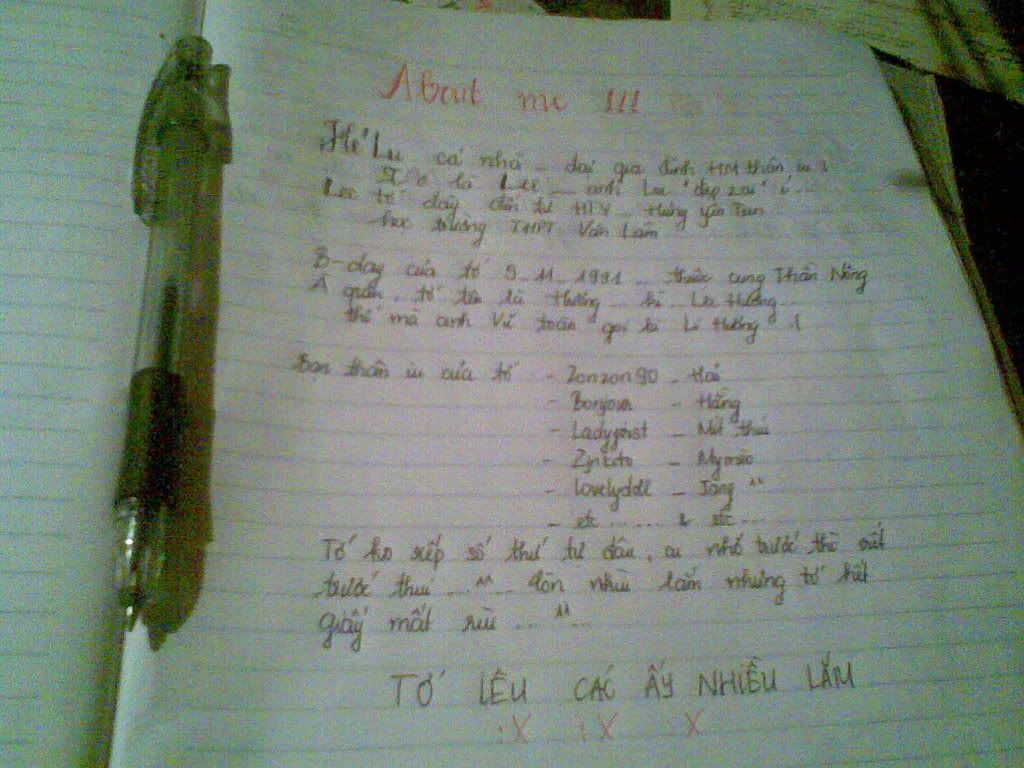 About me !!!
Hé Lu cả nhà ... đại gia đình HM thân iu !
Tớ là Lee ... anh Lee "đẹp zai" í ...
Lee tớ đây đến từ HY ... Hưng Yên Tun
học trường THPT Văn Lâm
B-day của tớ 9.11.1991 ... thuộc cung Thần Nông
À quên, tớ tên là Hường ... Hường ...
thế mà anh Vũ toàn gọi là Lee Hường !
Bạn thân iu của tớ - Zonzon90 - Hải
- Bonjour - Hằng
- - Mít thúi
- Zinkuto -
- lovelydoll - Jang ^^
- etc ........ & etc ....
Tớ ko xếp số thứ tự đâu, ai nhớ trước thì viết
trước thui ... ^^ ... Còn nhìu lắm nhưng tớ hết
giấy mất rùi ... ^^ ...
TỚ LÊU CÁC ẤY NHIỀU LẮM
:X :X :X